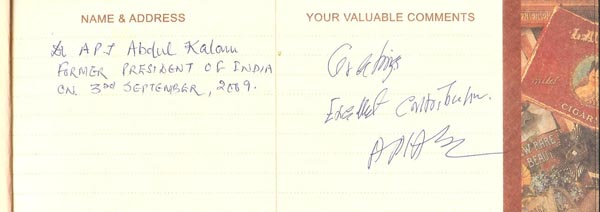 NAME & ADDRESS
YOUR VALUABLE COMMENTS
Dr APJ Abdul Kalam
FORMER PRESIDENT OF INDIA
ON 3rd SEPTEMBER, 2009.
Greetings
Excellent Contribution.
RARE
BEAUT
CIGAR